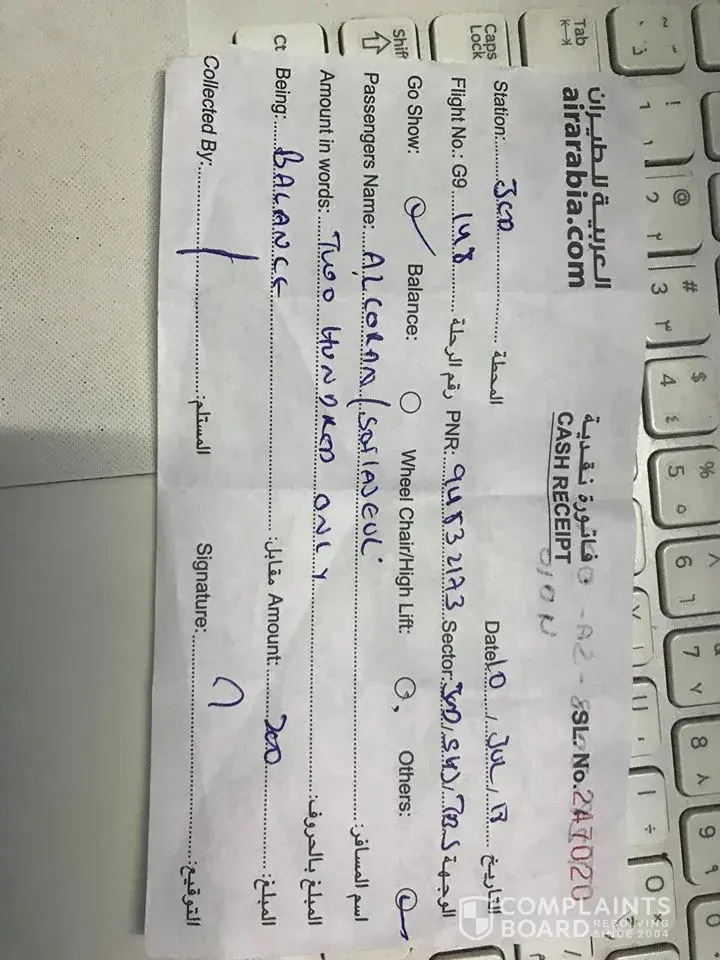 العربية للطيران
airarabia.com
فاتورة نقدية
CASH RECEIPT
SL. No. 2A7020
Station: JED المحطة
Date 10 / JUL / 17 التاريخ
Flight No.: G9 148 رقم الرحلة PNR: 94832173 Sector: JED / SHJ / الوجهة
Go Show: Balance: Wheel Chair/High Lift: Others:
Passengers Name: ALCORAN / اسم المسافر:
Amount in words: TWO HUNDRED ONLY المبلغ بالحروف:
ct Being: BALANCE مقابل: Amount: 200 المبلغ:
Collected By: المستلم: Signature: التوقيع:
Tab
Caps Lock
Shif
~
! 1 ١
@ 2 ٢
# 3 ٣
$ 4 ٤
% 5 ٥
^ 6 ٦
7 ٧
8 ٨
9 ٩
COMPLAINTS
BOARD RESOLVING SINCE 2004